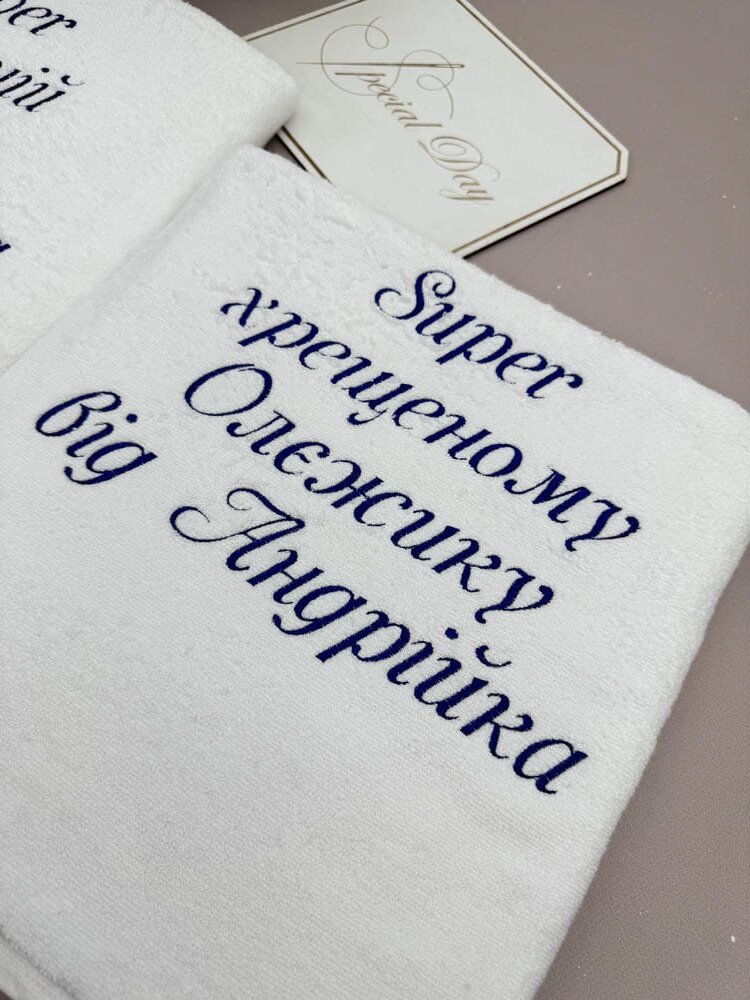 Special Day
Super
хрещеному
Олєжику
від Андрійка